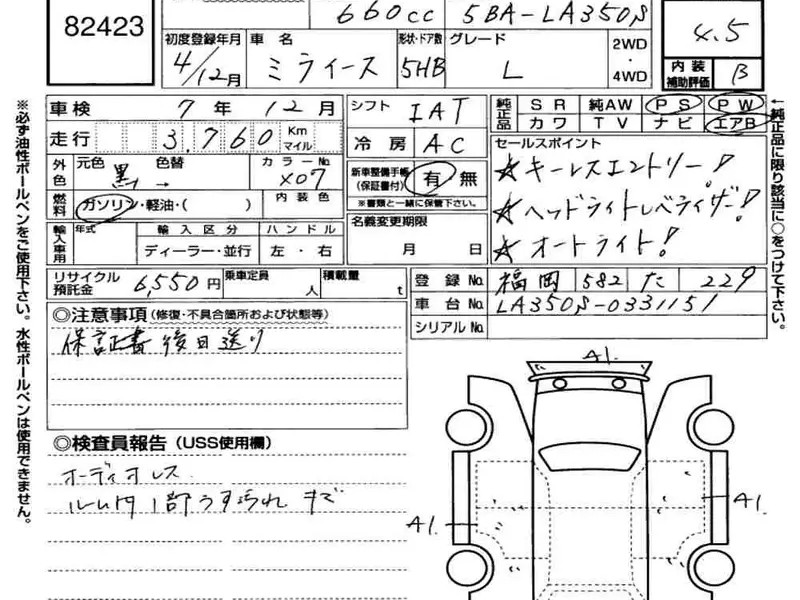 82423
660cc 5BA-LA350S
4.5
初度登録年月 車名 形状・ドア数 グレード 2WD・4WD 内装補助評価
4/12月 ミライース 5HB L B
車検 7年 12月 シフト IAT
純正品 SR 純AW PS PW
カワ TV ナビ エアB
走行 3,760 Km マイル 冷房 AC
外色 元色 色替 カラーNo.
黒 → X07
新車整備手帳(保証書付) 有 無
※書類と一緒に保管下さい。
セールスポイント
☆キーレスエントリー!
☆ヘッドライトレベライザー!
☆オートライト!
燃料 ガソリン・軽油・( ) 内装色
名義変更期限 月 日
輸入車用 年式 輸入区分 ハンドル
ディーラー・並行 左・右
リサイクル預託金 6,550円 乗車定員 人 積載量 t
登録No. 福岡 582 た 229
車台No. LA350S-0331151
シリアルNo.
◎注意事項(修復・不具合箇所および状態等)
保証書後日送り
◎検査員報告(USS使用欄)
オーディオレス
ルーム内1部うす汚れ キズ
A1.
A1.
A1.
※必ず油性ボールペンをご使用下さい。水性ボールペンは使用できません。
←純正品に限り該当に○をつけて下さい。